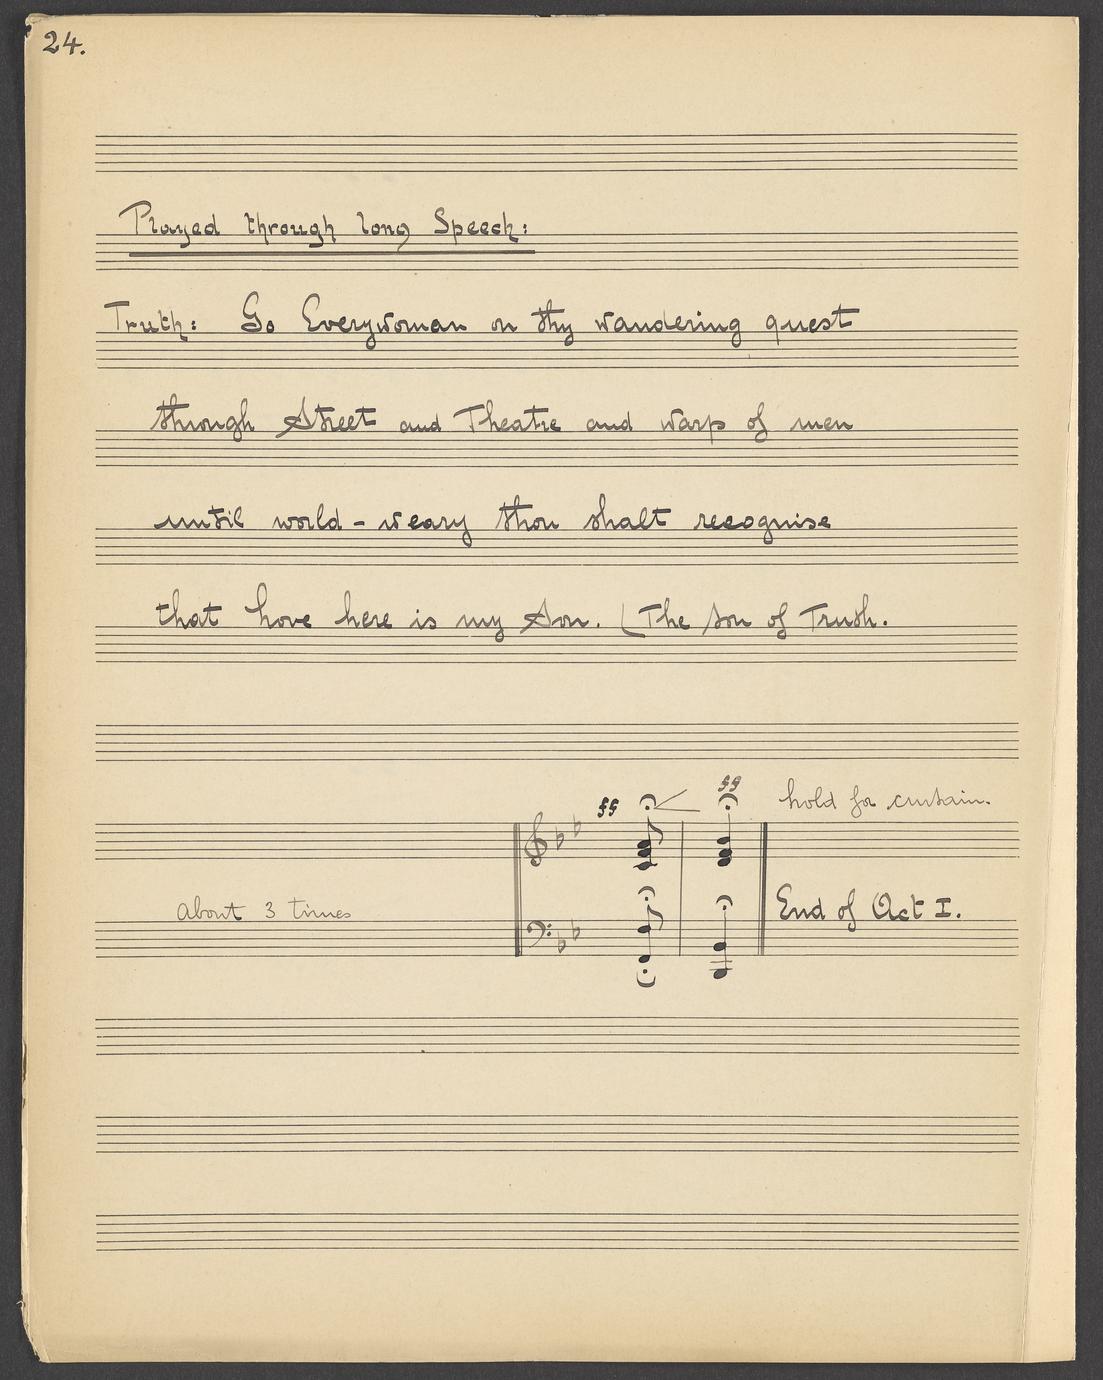 24.
Played through long Speech:
Truth: Go Everywoman on thy wandering quest
through Street and Theatre and warp of men
until world-weary thou shalt recognise
that Love here is my Son. (The son of Truth.
ff ff hold for curtain.
about 3 times End of Act I.